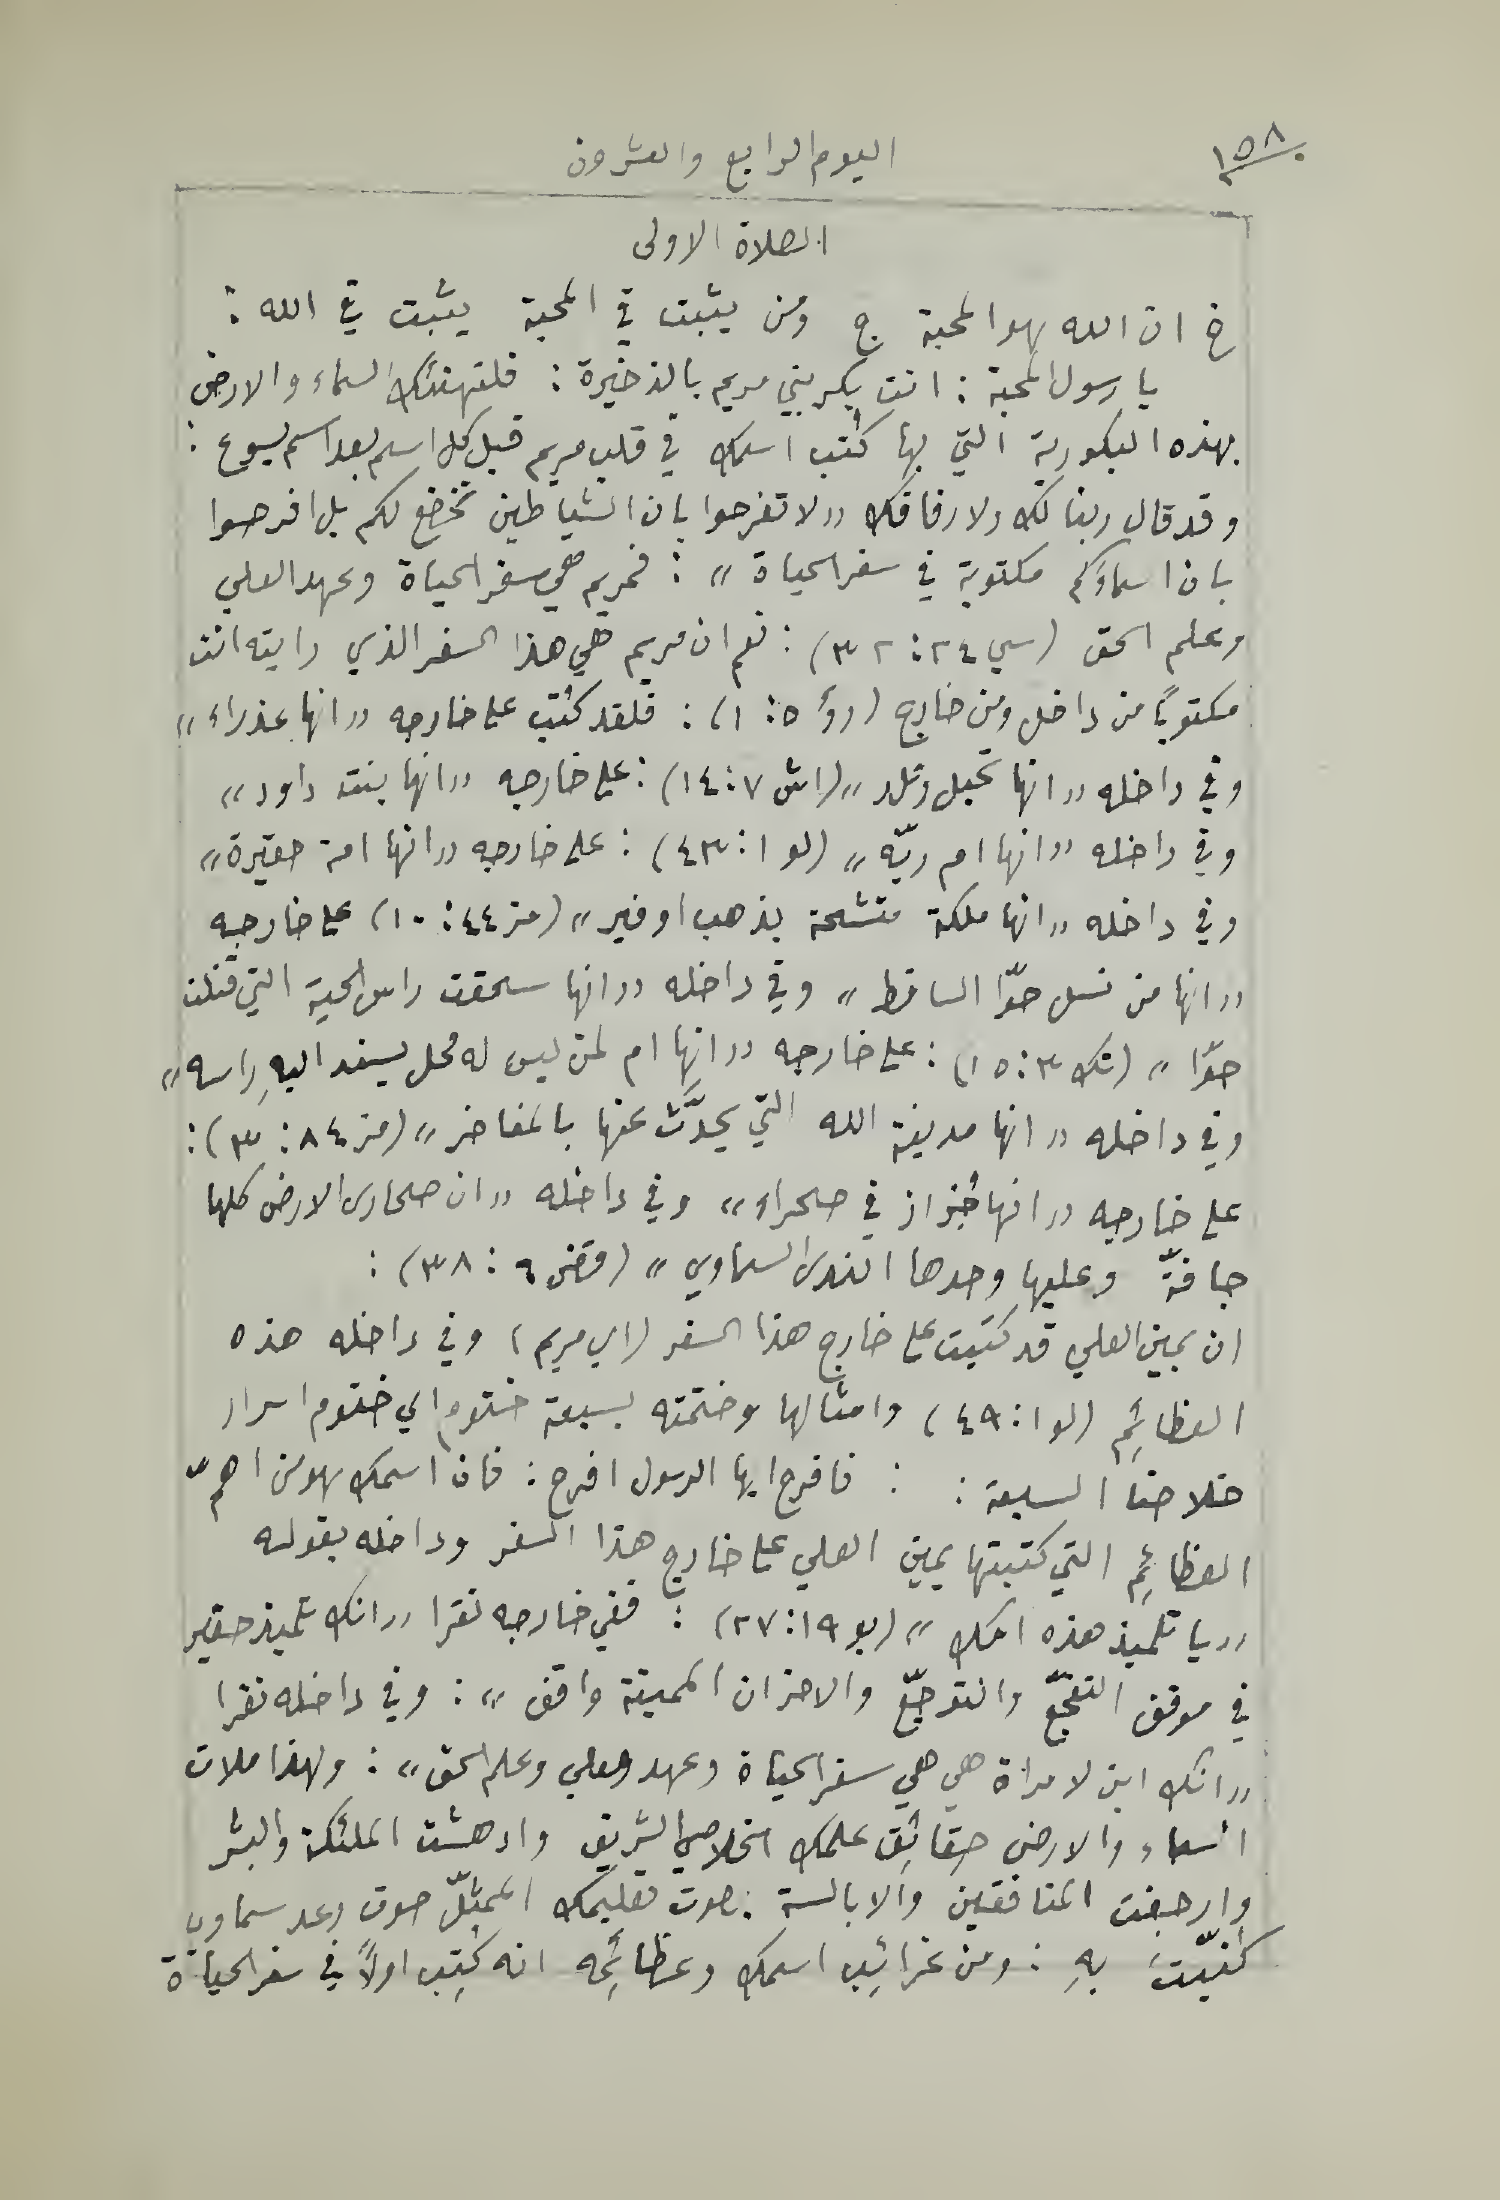 ١٥٨
اليوم الرابع والعشرون
الصلاة الاولى
خ ان الله هو المحبة ج ومن يثبت في المحبة يثبت في الله :
يا رسول المحبة : انت بكر بني مريم بالذخيرة : فلتهنئك السماء والارض
بهذه البكورية التي بها كُتب اسمك في قلب مريم قبل كل اسم بعد اسم يسوع :
وقد قال ربنا لك ولارفاقك «لا تفرحوا بان الشياطين تخضع لكم بل افرحوا
بان اسماءكم مكتوبة في سفر الحياة» : فمريم هي سفر الحياة وعهد العلي
وعلم الحق (سي ٢٤ : ٣٢) : نعم ان مريم هي هذا السفر الذي رايته انت
مكتوبًا من داخل ومن خارج (رؤ ٥ : ١) : فلقد كُتب على خارجه «انها عذراء»
وفي داخله «انها تحبل وتلد» (اش ٧ : ١٤) : على خارجه «انها بنت داود»
وفي داخله «انها ام ربّه» (لو ١ : ٤٣) : على خارجه «انها امة حقيرة»
وفي داخله «انها ملكة متشحة بذهب اوفير» (مز ٤٤ : ١٠) على خارجه
«انها من نسل حوّا الساقط» وفي داخله «انها سحقت راس الحية التي قتلت
حوّا» (تك ٣ : ١٥) : على خارجه «انها ام لمن ليس له محل يسند اليهِ راسه»
وفي داخله «انها مدينة الله التي يحدَّث عنها بالمفاخر» (مز ٨٤ : ٣) :
على خارجه «انها جُزاز في صحراء» وفي داخله «ان صحارى الارض كلها
جافّة وعليها وحدها الندى السماوي» (قض ٦ : ٣٨) :
ان يمين العلي قد كتبت على خارج هذا السفر (اي مريم) وفي داخله هذه
العظائِم (لو ١ : ٤٩) وامثالها وختمته بسبعة ختوم اي ختوم اسرار
خلاصنا السبعة : : فافرح ايها الرسول افرح : فان اسمك هو من اهمّ
العظائِم التي كتبتها يمين العلي على خارج هذا السفر وداخله بقوله
«يا تلميذ هذه امك» (يو ١٩ : ٢٧) : ففي خارجه نقرا «انك تلميذ حقير
في موقف التفجّع والتوجّع والاحزان المميتة واقف» : وفي داخله نقرا
«انك ابن لامراة هي هي سفر الحياة وعهد العلي وعلم الحق» : ولهذا ملات
السماء والارض حقائِق علمك الخلاصي الشريف وادهشت الملئكة والبشر
وارجفت المنافقين والابالسة بصوت تعليمك الممثلّ صوت رعد سماوي
كُنيّتَ بهِ : ومن غرائِب اسمك وعظائِمه انه كُتِب اولاً في سفر الحياة